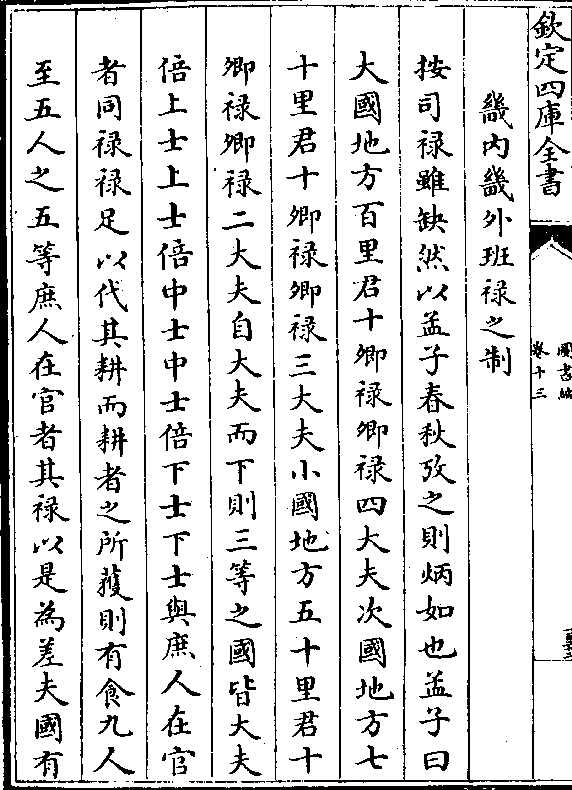 欽定四庫全書
圖書編
卷十三
畿内畿外班禄之制
按司禄雖缺然以孟子春秋攷之則炳如也孟子曰
大國地方百里君十卿禄卿禄四大夫次國地方七
十里君十卿禄卿禄三大夫小國地方五十里君十
卿禄卿禄二大夫自大夫而下則三等之國皆大夫
倍上士上士倍中士中士倍下士下士與庶人在官
者同禄禄足以代其耕而耕者之所獲則有食九人
至五人之五等庶人在官者其禄以是為差夫國有